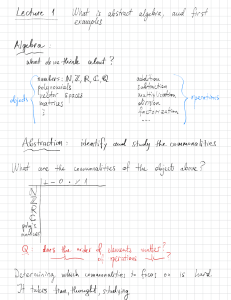 Lecture 1 What is abstract algebra, and first
examples
Algebra
what do we think about?
numbers: ℕ, ℤ, ℝ, ℂ, ℚ addition
polynomials subtraction
objects vector spaces multiplication operations
matrices division
⋮ factorization
...
Abstraction: identify and study the commonalities
What are the commonalities of the objects above?
+ - 0 · / 1
ℕ
ℤ
ℚ
ℝ
ℂ
poly's
matrices
Q: does the order of elements matter?
operations
Determining which commonalities to focus on is hard
It takes time, thought, studying